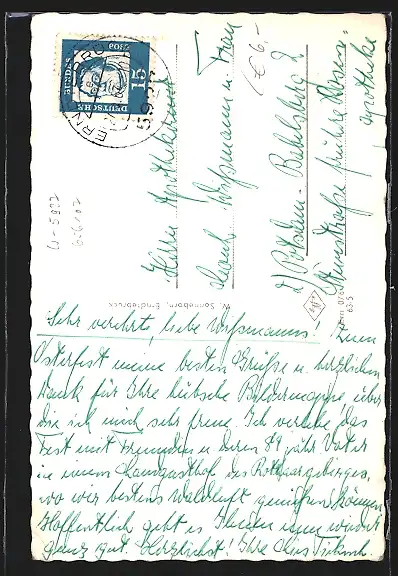 DEUTSCHE
BUNDES
15
Herrn Apothekenrat
Wißmann u. Frau
Potsdam-Babelsberg 2
frühere Rosen-
apotheke
€ 6,-
W. Sonneborn, Erndtebrück
63-5
Sehr verehrte, liebe Wißmanns! Zum
Osterfest meine besten Grüße u. herzlichen
Dank für Ihre hübsche Bildermappe über
die ich mich sehr freue. Ich verlebe das
Fest mit Freunden u. deren 89 jähr. Vater
in einem Landgasthof des Rothaargebirges,
wo wir bestens Waldluft genießen können.
Hoffentlich geht es Ihnen immer wieder
ganz gut. Herzlichst! Ihre